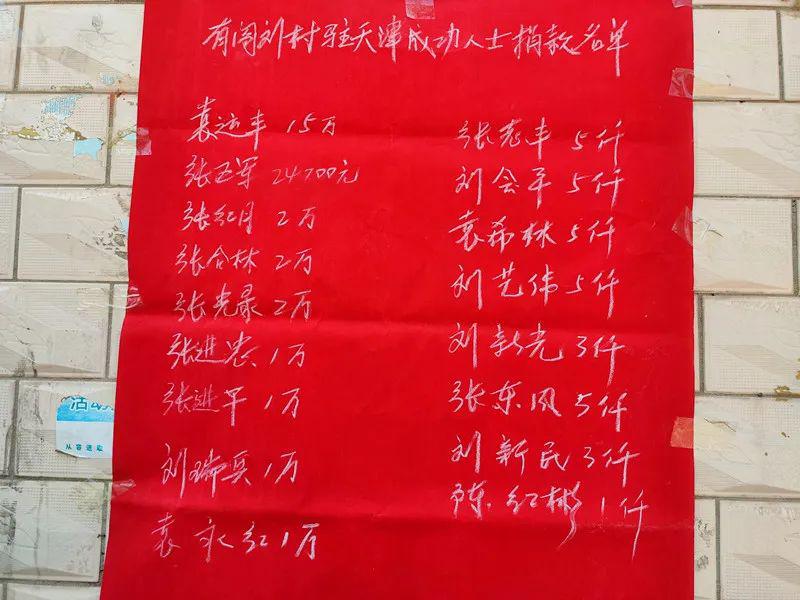 有闾刘村驻天津成功人士捐款名单
袁运丰 15万
张卫军 24700元
张红月 2万
张合林 2万
张光录 2万
张进忠 1万
张进平 1万
刘瑞兵 1万
袁永红 1万
张志丰 5仟
刘会平 5仟
袁希林 5仟
刘艺伟 5仟
刘新光 3仟
张东风 5仟
刘新民 3仟
陈红彬 1仟
从容进取